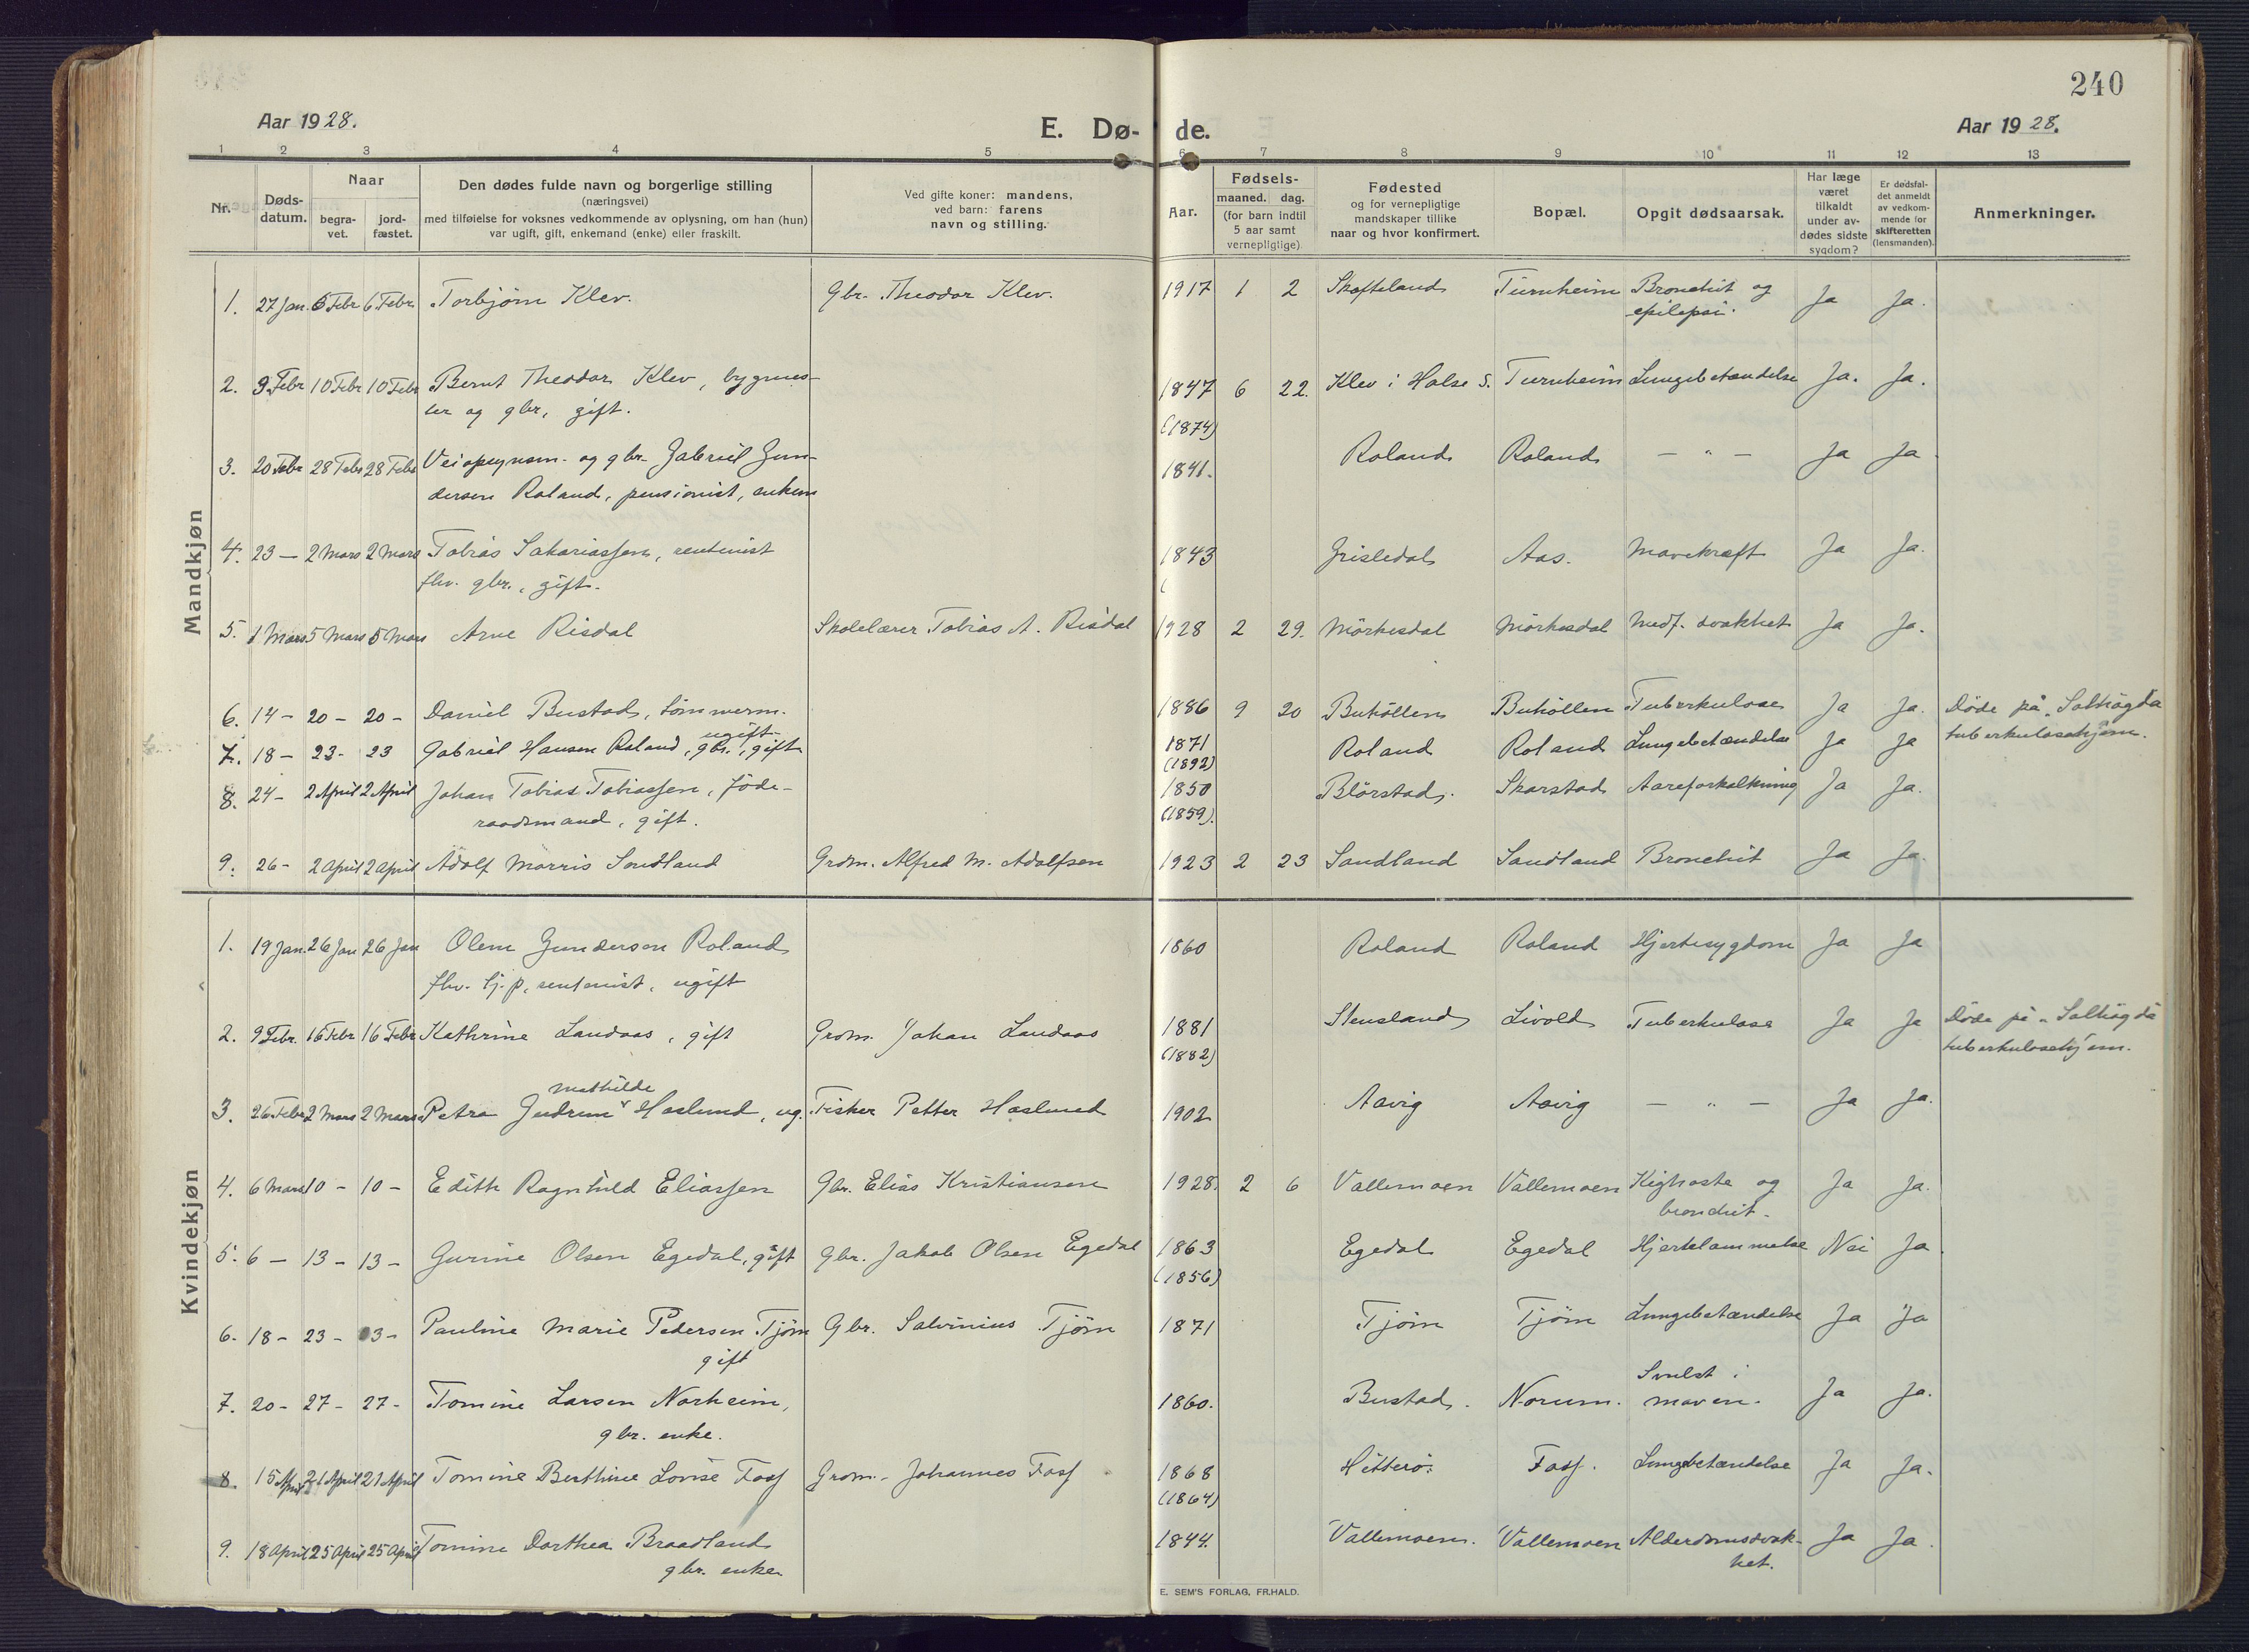 240
Aar 1928.
E. Dø- de.
Aar 1928.
1 2 3 4 5 6 7 8 9 10 11 12 13
Nr. Døds-datum. Naar begra-vet. jord-fæstet. Den dødes fulde navn og borgerlige stilling (næringsvei) med tilføielse for voksnes vedkommende av oplysning, om han (hun) var ugift, gift, enkemand (enke) eller fraskilt. Ved gifte koner: mandens, ved barn: farens navn og stilling. Aar. Fødsels- maaned. dag. (for barn indtil 5 aar samt vernepligtige). Fødested og for vernepligtige mandskaper tillike naar og hvor konfirmert. Bopæl. Opgit dødsaarsak. Har læge været tilkaldt under av-dødes sidste sygdom? Er dødsfal-det anmeldt av vedkom-mende for skifteretten (lensmanden). Anmerkninger.
Mandkjøn
1. 27 Jan. 6 Febr 6 Febr. Torbjørn Klev. Gbr. Theodor Klev. 1917 1 2 Skofteland Turnheim Bronchit og Ja Ja.
epilepsi.
2. 3. Febr 10 Febr 10 Febr Bernt Theodor Klev, bygmes- 1847 6 22. Klev i Halse s. Turnheim Lungebetændelse Ja. Ja.
ter og gbr, gift. (1874)
3. 20 Febr 28 Febr 28 Febr Veiopsynsm. og gbr. Gabriel Gun- 1841. Roland Roland — " — Ja Ja.
dersen Roland, pensionist, enkem
4. 23 — 2 Mars 2 Mars Tobias Sakariassen, rentenist 1843 Grisledal Aas. Mavekræft Ja Ja.
fhv. gbr., gift. (
5. 1 Mars 5 Mars 5 Mars Arne Risdal Skolelærer Tobias A. Risdal 1928 2 29. Mörkesdal Mörkesdal Medf. svakhet Ja Ja.
6. 14 - 20 - 20 - Daniel Bustad, tömmerm. 1886 9 20 Buhöllen Buhöllen Tuberkulose Ja Ja. Döde på "Solhögda
ugift tuberkulosehjem.
7. 18 - 23 - 23 Gabriel Hansen Roland, gbr., gift 1871 Roland Roland Lungebetændelse Ja Ja
(1892)
8. 24 - 2 April 2 April Johan Tobias Tobiassen, föde- 1850 Blörstad. Skarstad Aareforkalkning Ja Ja.
raadsmand, gift. (1859).
9. 26 - 2 April 2 April Adolf Morris Sandland Grdm. Alfred M. Adolfsen 1923 2 23 Sandland Sandland Bronchit Ja Ja.
Kvindekjøn
1. 19 Jan. 26 Jan 26 Jan Olene Gundersen Roland 1860 Roland Roland Hjertesygdom Ja Ja
fhv. tj. p, rentenist, ugift
2. 9 Febr. 16 Febr 16 Febr Kathrine Landaas, gift Grdm. Johan Landaas 1881 Stensland Livold Tuberkulose Ja Ja Döde på "Solhögda
(1882) tuberkulosehjem.
mathilde
3. 26 Febr 2 Mars 2 Mars Petra Gudrun Haslund, ug. Fisker Petter Haslund 1902 Aavig Aavig — " — Ja Ja.
4. 6 Mars 10 - 10 - Edith Ragnhild Eliassen Gbr. Elias Kristiansen 1928. 2 6 Vallemoen Vallemoen Kighoste og Ja Ja.
bronchit.
5. 6 — 13 - 13 - Gurine Olsen Egedal, gift Gbr. Jakob Olsen Egedal 1863 Egedal Egedal Hjertelammelse Nei Ja.
(1856)
6. 18 - 23 - 23 - Pauline Marie Pedersen Tjöm Gbr. Salvinius Tjöm 1871 Tjöm Tjöm Lungebetændelse Ja Ja
gift
7. 20 - 27 - 27 - Tomine Larsen Norheim, 1860. Bustad. Norum. Svulst i maven. Ja Ja.
gbr. enke.
8. 15 April 21 April 21 April Tomine Berthine Lovise Foss Grdm. Johannes Foss 1868 Hitterö. Foss. Lungebetændelse Ja Ja.
(1864)
9. 18 April 25 April 25 April Tomine Dorthea Braadland 1844. Vallemoen. Vallemoen Alderdomssvak- Ja Ja.
gbr. enke het.
E. SEM'S FORLAG, FR.HALD.